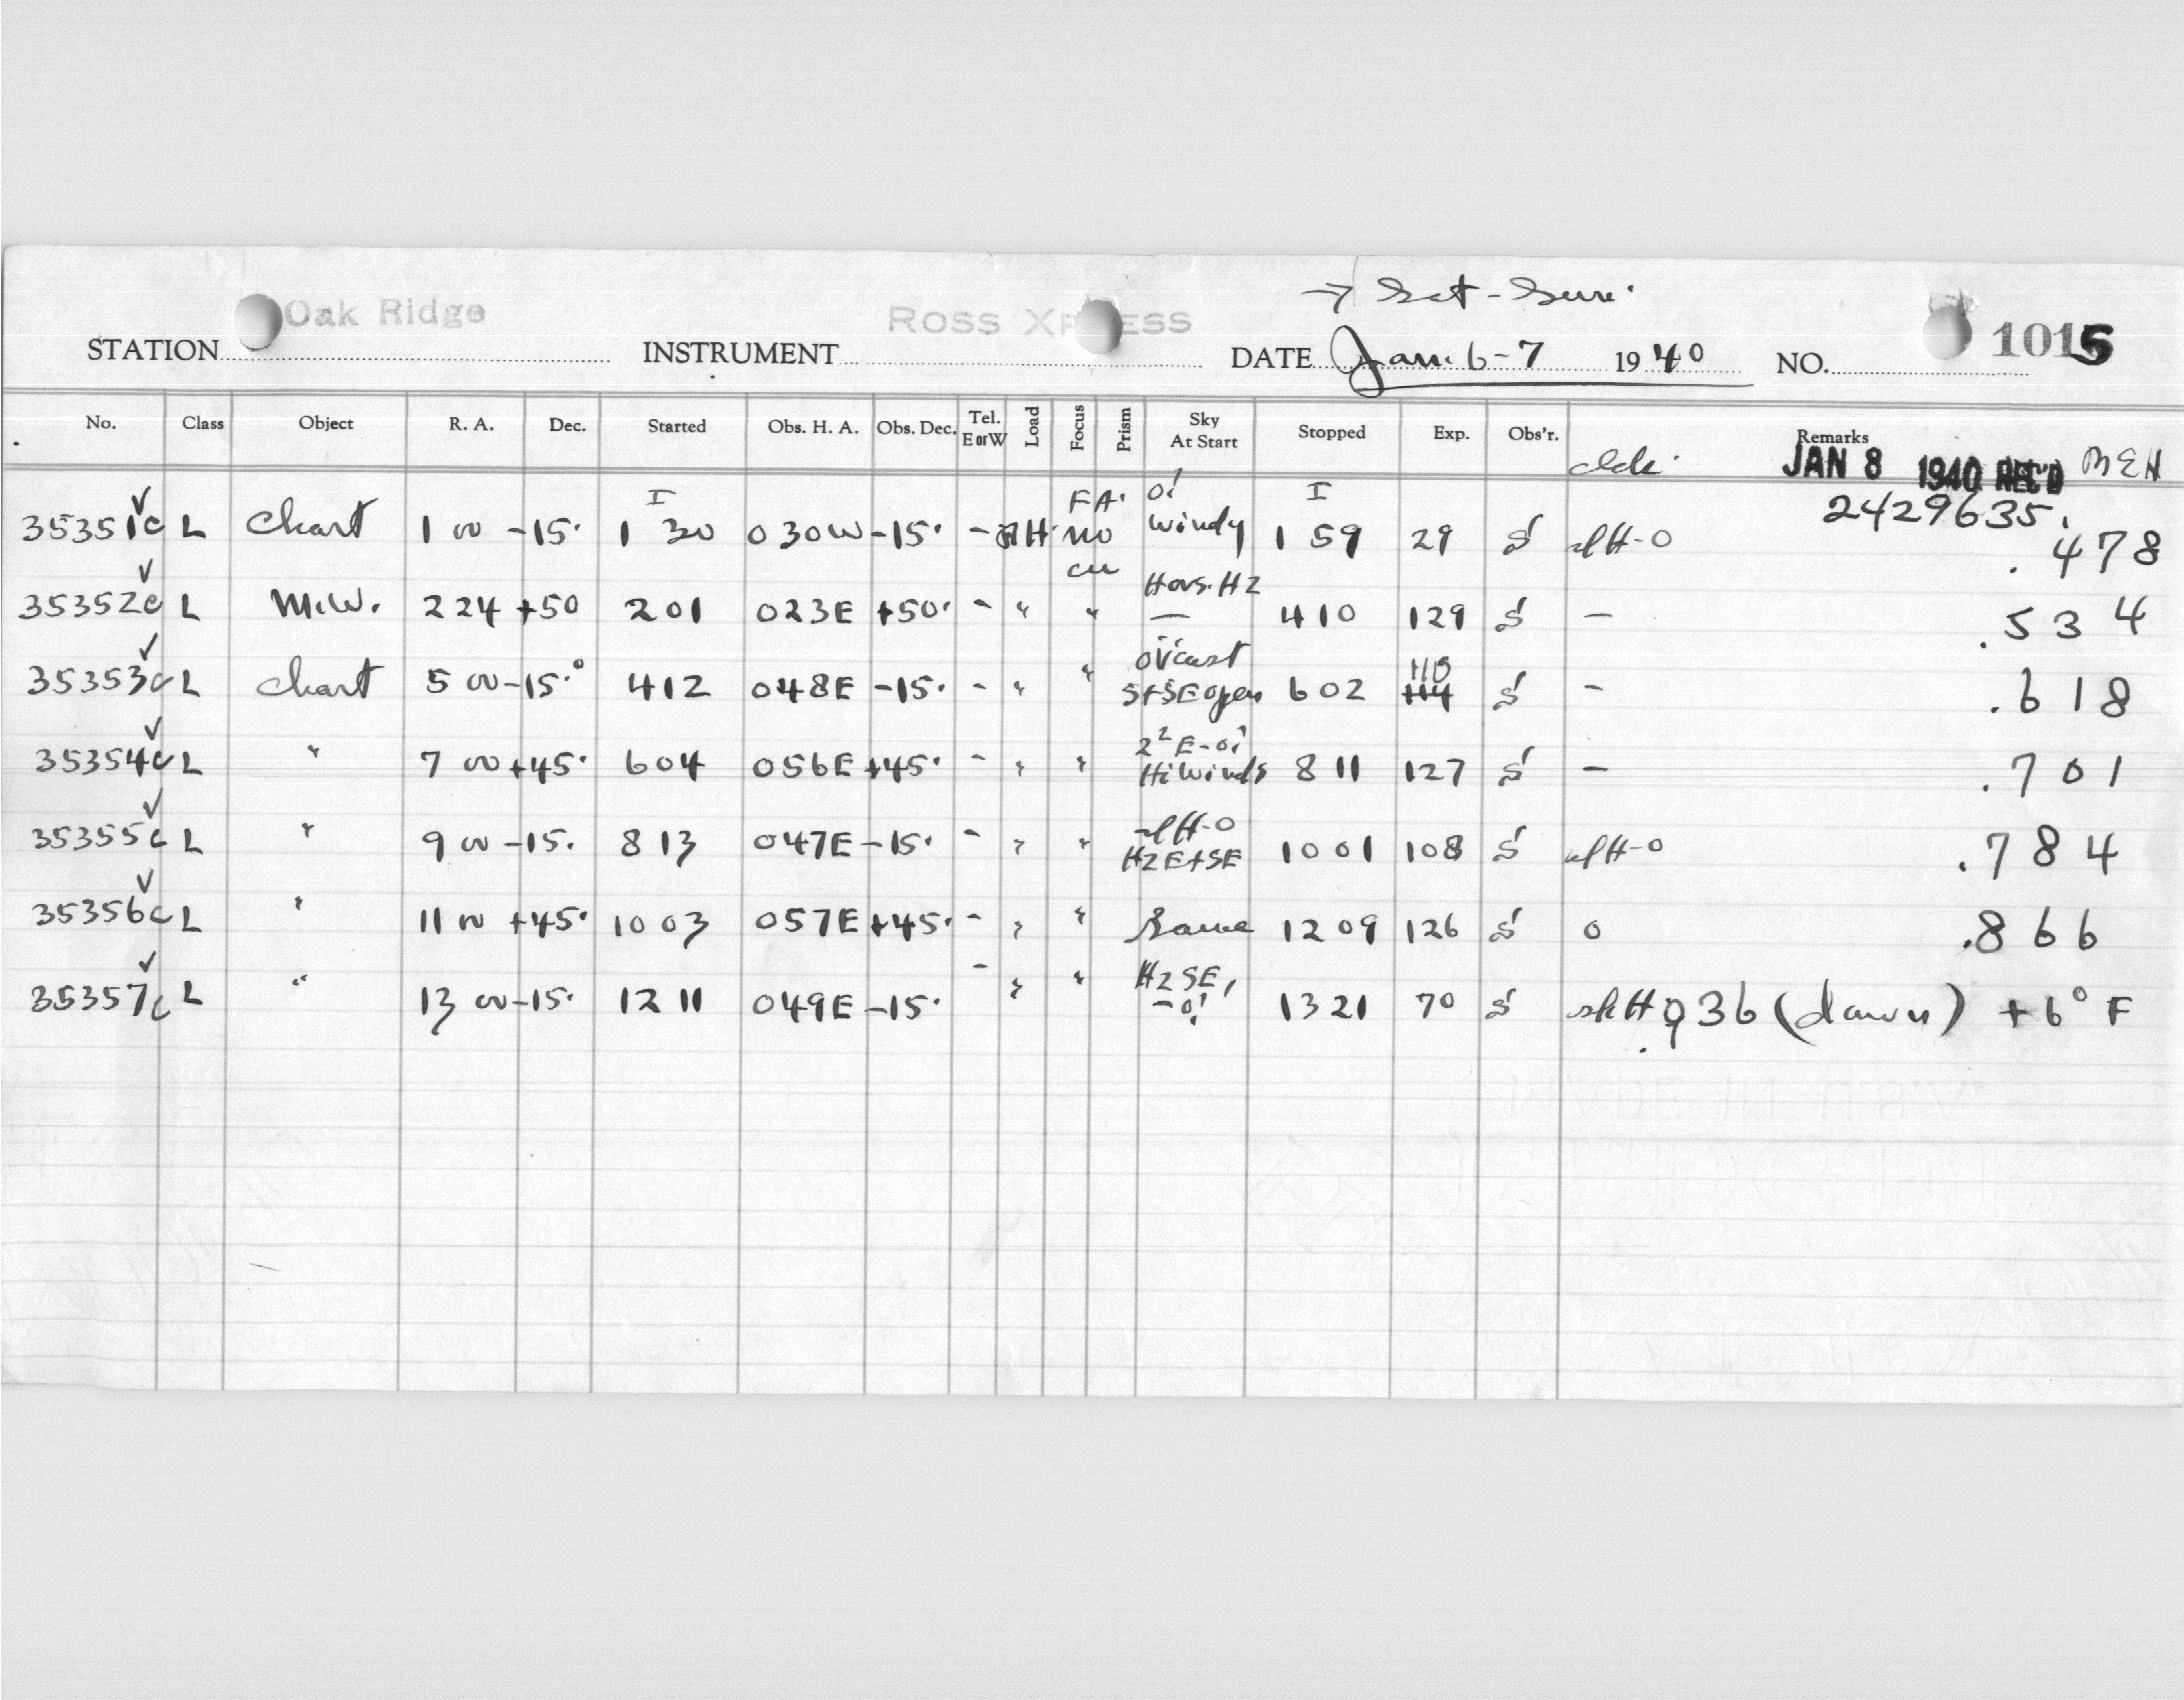 → Sat - Sun.
STATION Oak Ridge INSTRUMENT ROSS XPRESS DATE Jan. 6-7 1940 NO. 1015
No. Class Object R. A. Dec. Started Obs. H. A. Obs. Dec. Tel. E or W Load Focus Prism Sky At Start Stopped Exp. Obs'r. Remarks
JAN 8 1940 REC'D BEH
2429635.
35351c L Chart 1 00 -15° I 1 30 030W -15° - AH FA. no windy I 1 59 29 S .478
35352c L M.W. 2 24 +50 2 01 023E +50° - " " Hors. H2 — 4 10 129 S — .534
35353c L Chart 5 00 -15° 4 12 048E -15° - " " ov'cast S+SE open 6 02 110 114 S — .618
35354c L " 7 00 +45° 6 04 056E +45° - " " 2² E-0! Hi winds 8 11 127 S — .701
35355c L " 9 00 -15° 8 13 047E -15° - " " slH-0 H2 E+SE 10 01 108 S slH-0 .784
35356c L " 11 00 +45° 10 03 057E +45° - " " Same 12 09 126 S 0 .866
35357c L " 13 00 -15° 12 11 049E -15° - " " H2 SE, -0! 13 21 70 S .936 (dawn) +6° F